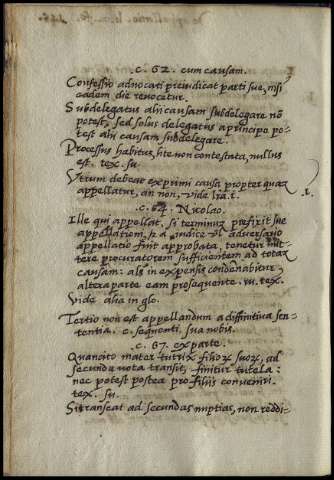 .c. 62. cum causam.
Confessio advocati preiudicat parti sue, nisi
eadem die revocetur.
Subdelegatus alii causam subdelegare nõ
potest, sed solus delegatus a principe po-
test alii causam subdelegare.
Processus habitus, lite non contestata, nullus
est. tex. su.
Verum debeat exprimi causa propter quaꝫ
appellatur, an non, vide lr̃a.r.
.c. 64. Nicolao.
Ille qui appellat, si terminuꝫ prefixit sue
appellationi, a iudice vl adversario
appellatio fuit approbata, tenetur mit-
tere procuratorem sufficientem ad totaꝫ
causam: als in expensis condenabitur,
altera parte eam prosequente. vt. tex.
Vide alia in glo.
Tertio non est appellandum a diffinitiva sen-
tentia. c. sequenti, sua nobis.
.c. 67. ex parte.
Quando mater tutrix filioꝝ suoꝝ, ad
secunda vota transit, finitur tutela:
nec potest postea pro filiis conveniri.
tex. su.
Si transeat ad secundas nuptias, non reddi-